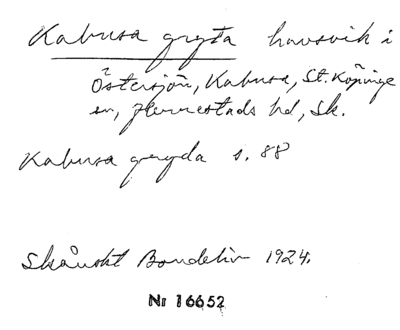 Kabusa gryta havsvik i
Östersjön, Kabusa, St. Köpinge
sn, Herrestads hd, Sk.
Kabusa gryda s. 88
Skånskt Bondeliv 1924.
Nr 16652